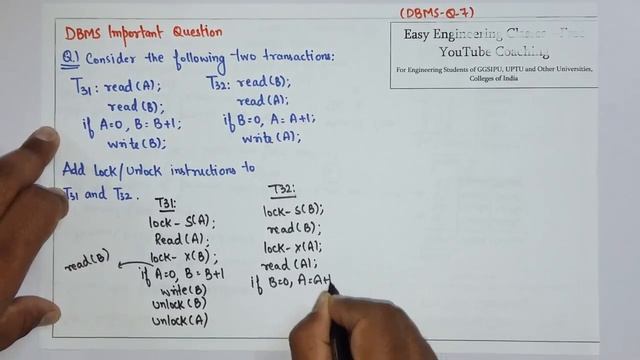 (DBMS-Q-7)
DBMS Important Question
Easy Engineering Classes – Free
YouTube Coaching
For Engineering Students of GGSIPU, UPTU and Other Universities,
Colleges of India
Q.1 Consider the following two transactions:
T31: read(A); T32: read(B);
read(B); read(A);
if A=0, B=B+1; if B=0, A=A+1;
write(B); write(A);
Add lock/Unlock instructions to
T31 and T32.
T31:
lock-S(A);
Read(A);
lock-X(B);
read(B)
if A=0, B=B+1
write(B)
unlock(B)
unlock(A)
T32:
lock-S(B);
read(B);
lock-X(A);
read(A);
if B=0, A=A+1